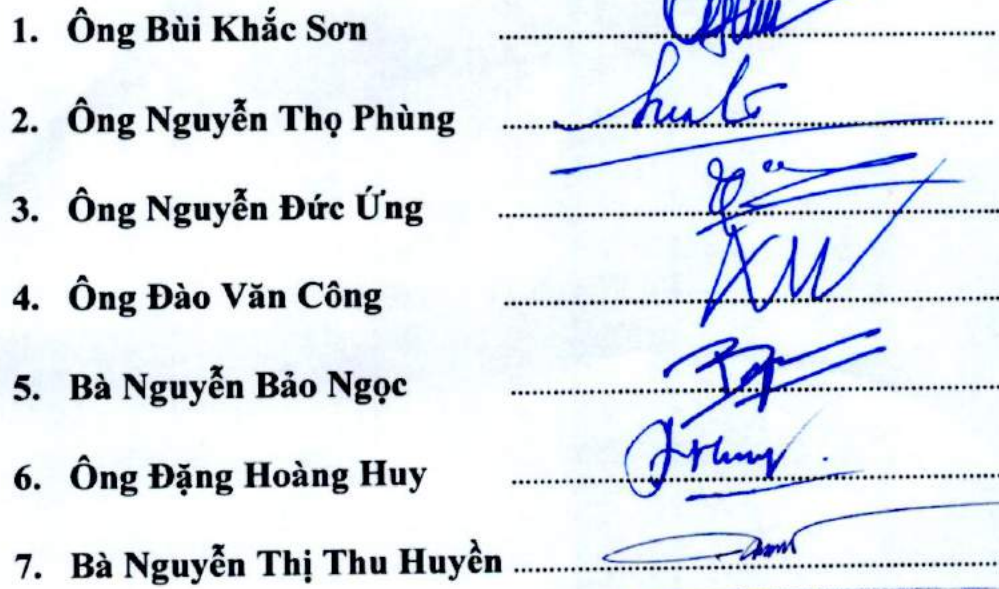 1. Ông Bùi Khắc Sơn
2. Ông Nguyễn Thọ Phùng
3. Ông Nguyễn Đức Ứng
4. Ông Đào Văn Công
5. Bà Nguyễn Bảo Ngọc
6. Ông Đặng Hoàng Huy
7. Bà Nguyễn Thị Thu Huyền